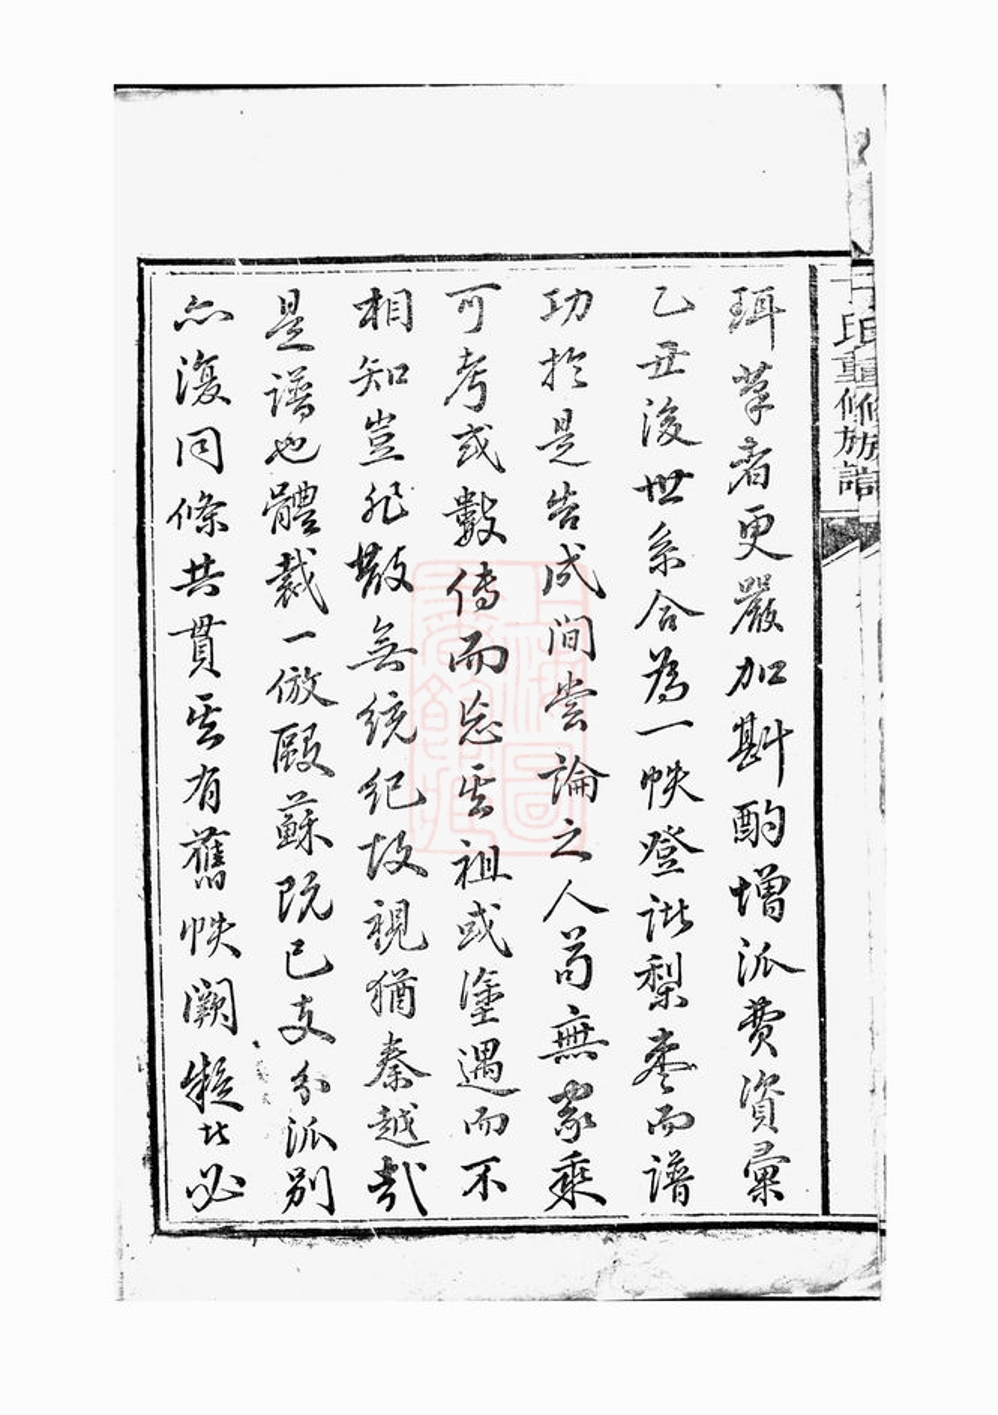 珥草者更嚴加斟酌增派費資彙
乙丑後世系合為一帙登諸梨枣而譜
功於是告成間尝論之人苟無家乘
可考或數傳而忘其祖或塗遇而不
相知豈非散無统纪故視猶秦越哉
是谱也體裁一倣歐蘇既已支分派别
亦復同條共貫其有舊帙闕疑者必
氏重修族譜